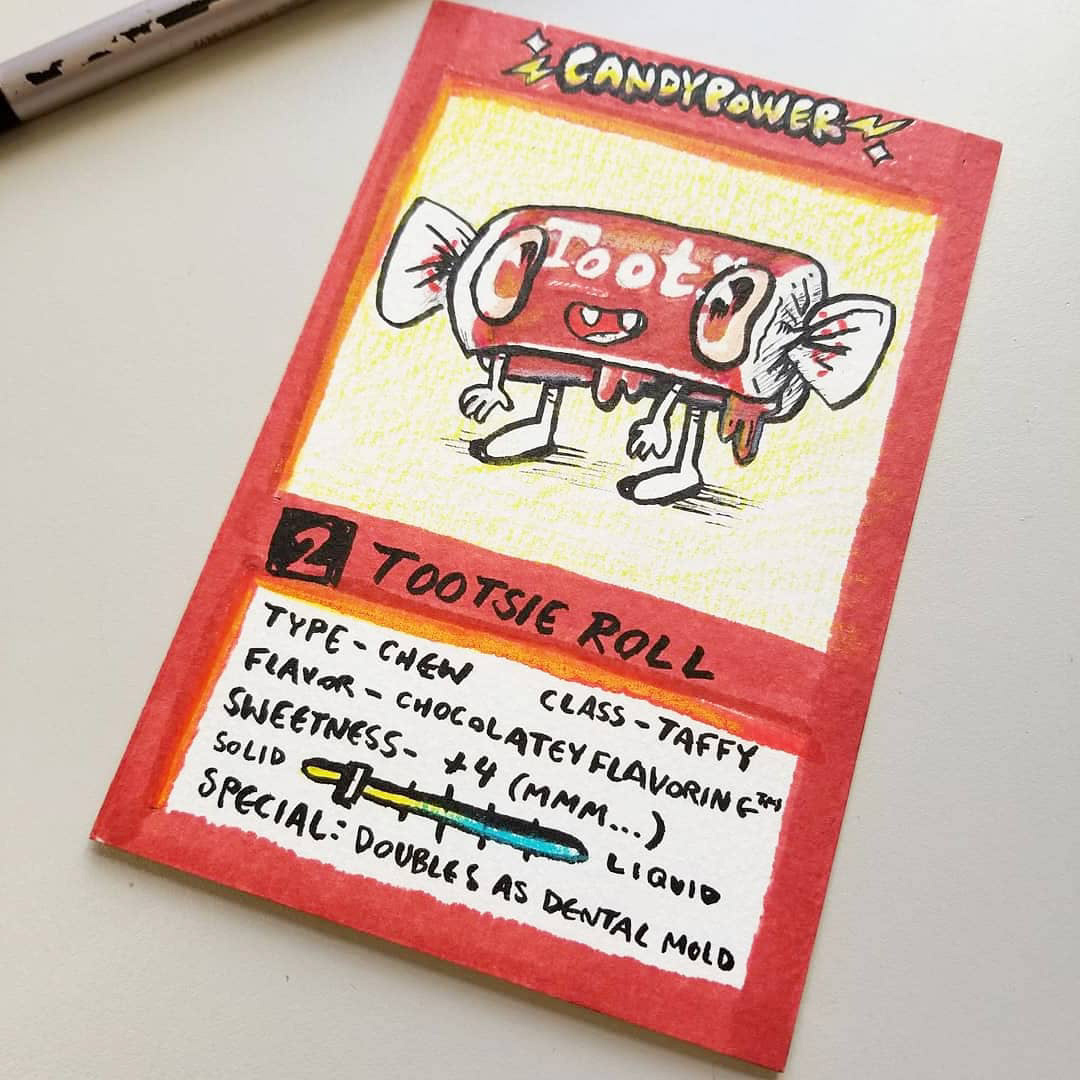 CANDYPOWER
Toots
2 TOOTSIE ROLL
TYPE - CHEW CLASS - TAFFY
FLAVOR - CHOCOLATEY FLAVORING™
SWEETNESS - +4 (MMM...)
SOLID LIQUID
SPECIAL: DOUBLES AS DENTAL MOLD